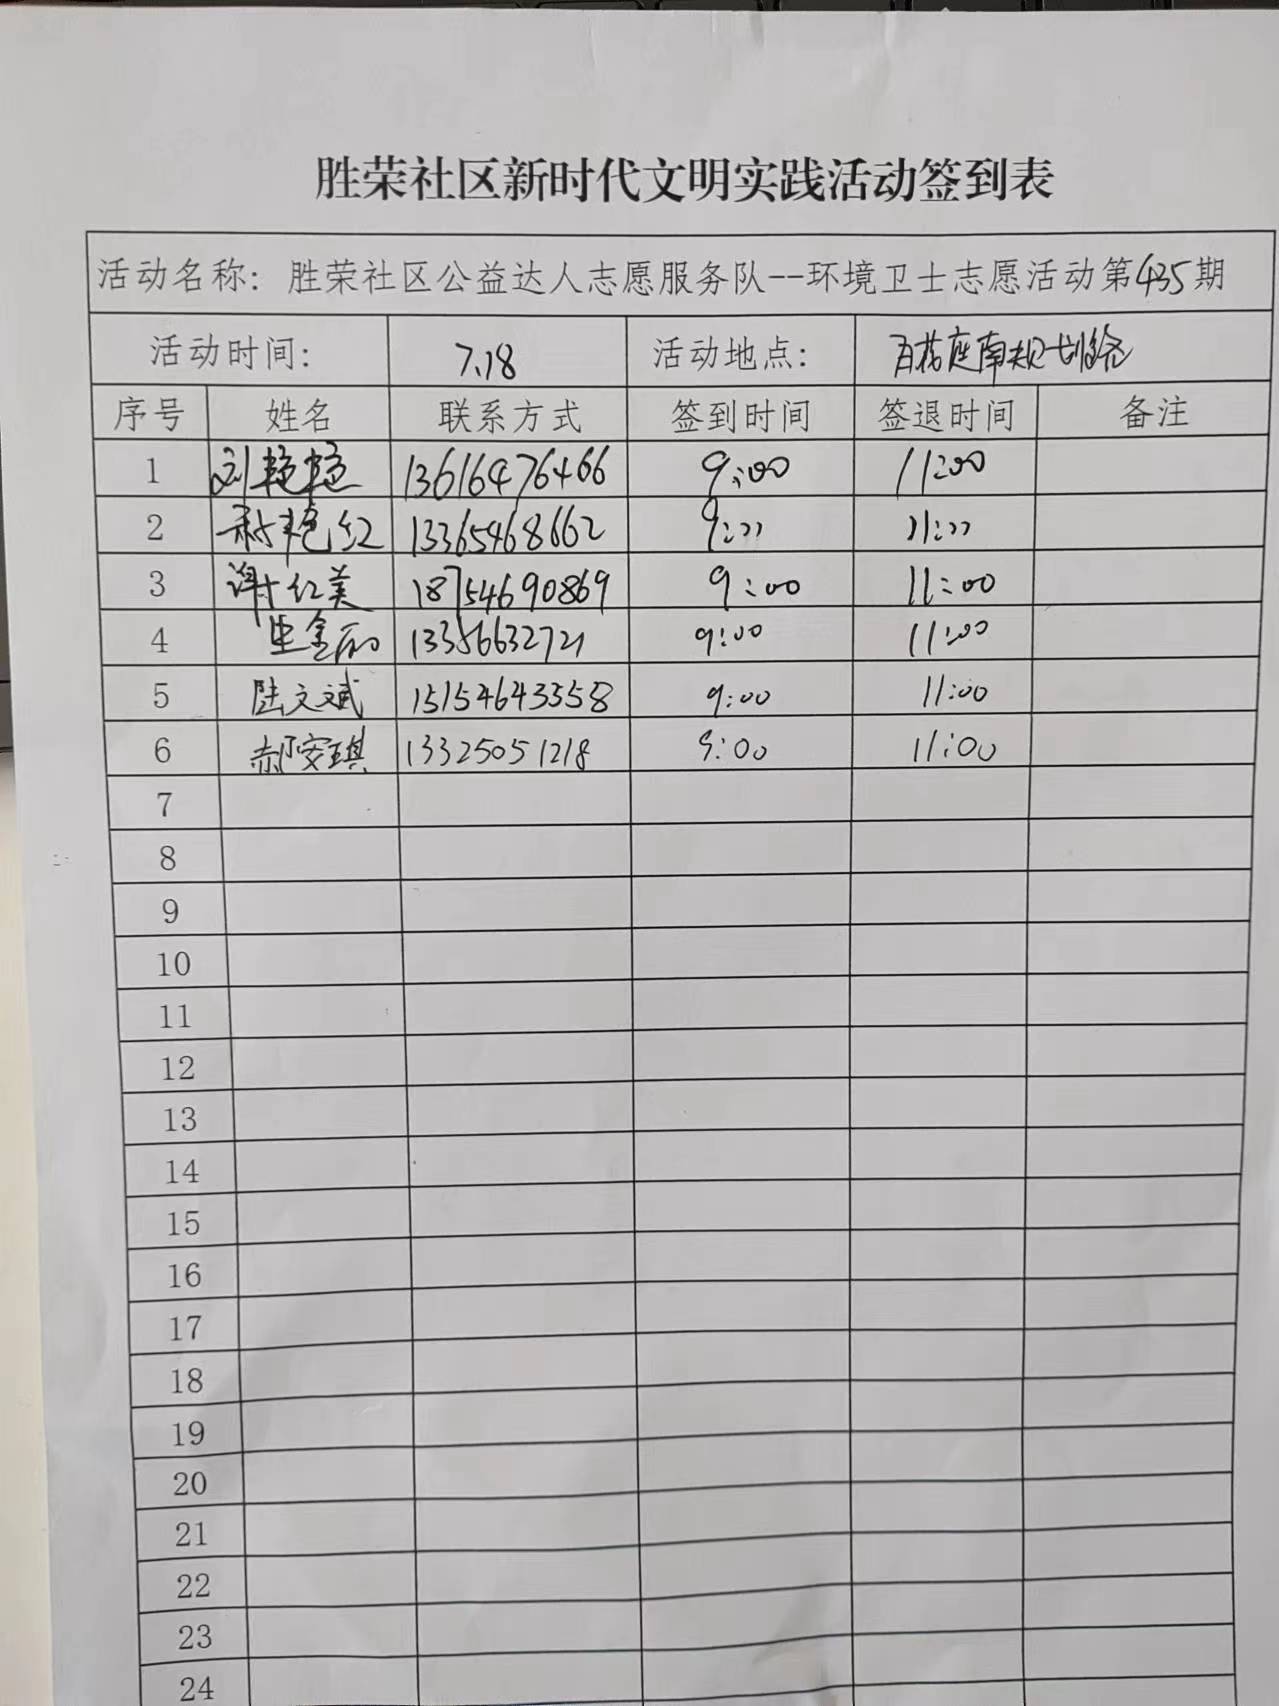 胜荣社区新时代文明实践活动签到表
活动名称：胜荣社区公益达人志愿服务队--环境卫士志愿活动第435期
活动时间： 7.18 活动地点： 百花庭南规划路
序号 姓名 联系方式 签到时间 签退时间 备注
1 刘艳艳 13616476466 9:00 11:00
2 艳红 13365468662 9:00 11:00
3 谢红美 18754690869 9:00 11:00
4 13356632721 9:00 11:00
5 陆文斌 15154643558 9:00 11:00
6 郝安琪 13325051218 9:00 11:00
7
8
9
10
11
12
13
14
15
16
17
18
19
20
21
22
23
24